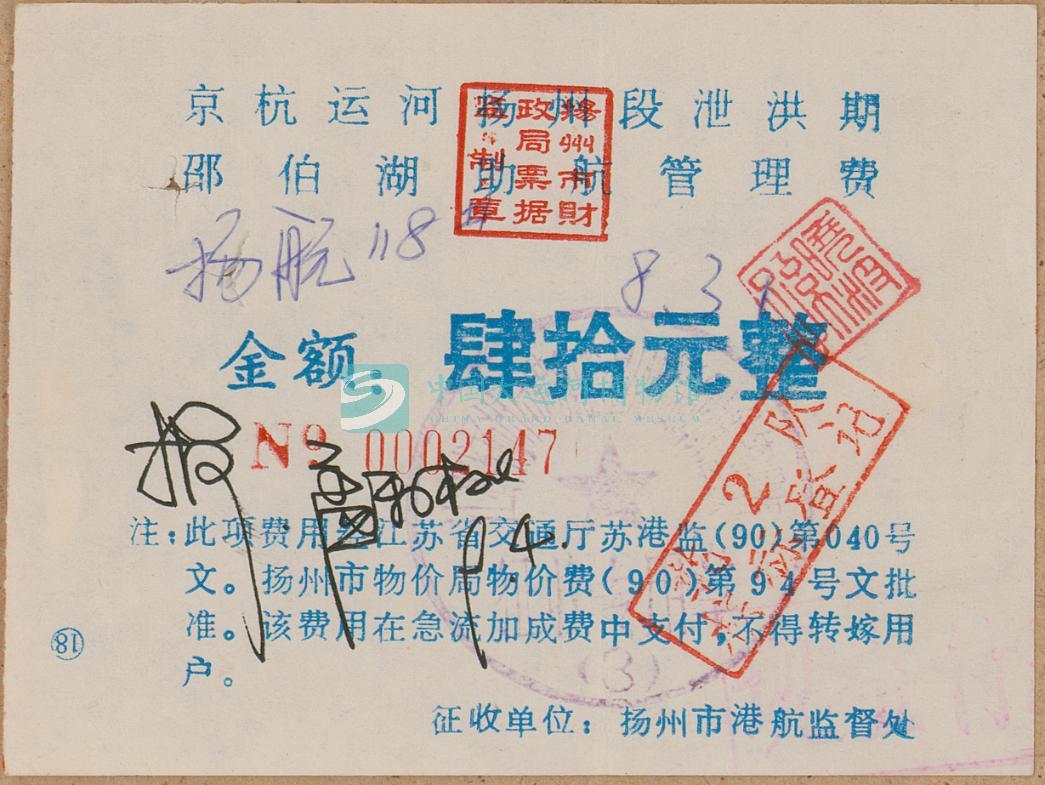 京杭运河扬州段泄洪期
邵伯湖助航管理费
揚州市財政局票据监制章
扬航118#
8.31
金额 肆拾元整
中国大运河博物馆
CHINA GRAND CANAL MUSEUM
№ 0002147
报
9.4.
2队
登记
注:此项费用经江苏省交通厅苏港监(90)第040号
文。扬州市物价局物价费(90)第94号文批
准。该费用在急流加成费中支付,不得转嫁用
户。
(3)
18
征收单位:扬州市港航监督处